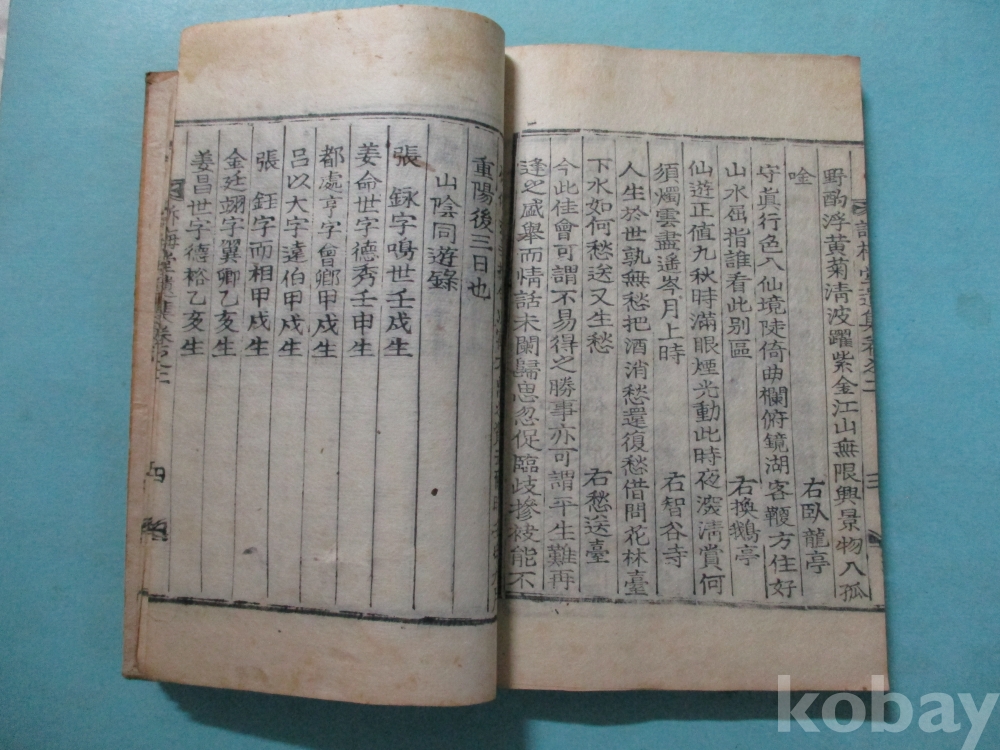 野酌浮黃菊清波躍紫金江山無限興景物入孤
唫
右臥龍亭
守眞行色入仙境陡倚曲欄俯鏡湖客鞭方住好
山水屈指誰看此別區
右換鵝亭
仙遊正值九秋時滿眼煙光動此時夜深淸賞何
須燭雲盡遙岑月上時
右智谷寺
人生於世孰無愁把酒消愁還復愁借問花林臺
下水如何愁送又生愁
右愁送臺
今此佳會可謂不易得之勝事亦可謂平生難再
逢之盛舉而情話未闌歸思忽促臨歧摻袂能不
重陽後三日也
山陰同遊錄
張 銾字鳴世壬戌生
姜命世字德秀壬申生
都處亨字會卿甲戌生
呂以大字達伯甲戌生
張 鈺字而相甲戌生
金廷翊字翼卿乙亥生
姜昌世字德裕乙亥生
三
四
kobay